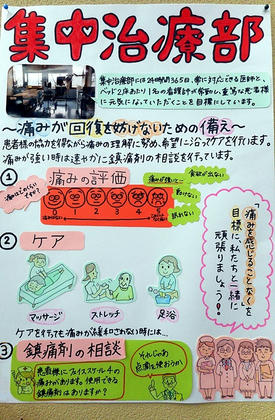 集中治療部
集中治療部には24時間365日、常に対応できる医師と、
ベッド2床あたり1名の看護師が常勤し、重篤な患者様
に元気になっていただくことを目標にしています。
〜痛みが回復を妨げないための備え〜
患者様の協力を得ながら痛みの理解に努め、希望に沿ってケアを行います。
痛みが強い時は速やかに鎮痛剤の相談を行っています。
① 痛みの評価
痛みが強いと…
食欲が出ない
動けない
眠れない
0 1 2 3 4 5
② ケア
マッサージ
ストレッチ
足浴
「痛みを感じることなくを
目標に私たちと一緒に
頑張りましょう!」
ケアを行っても痛みが緩和されない時は…
③ 鎮痛剤の相談
患者様にフェイススケール4の
痛みがあります。使用できる
鎮痛剤はありますか?
それじゃあ
点滴を使おうか